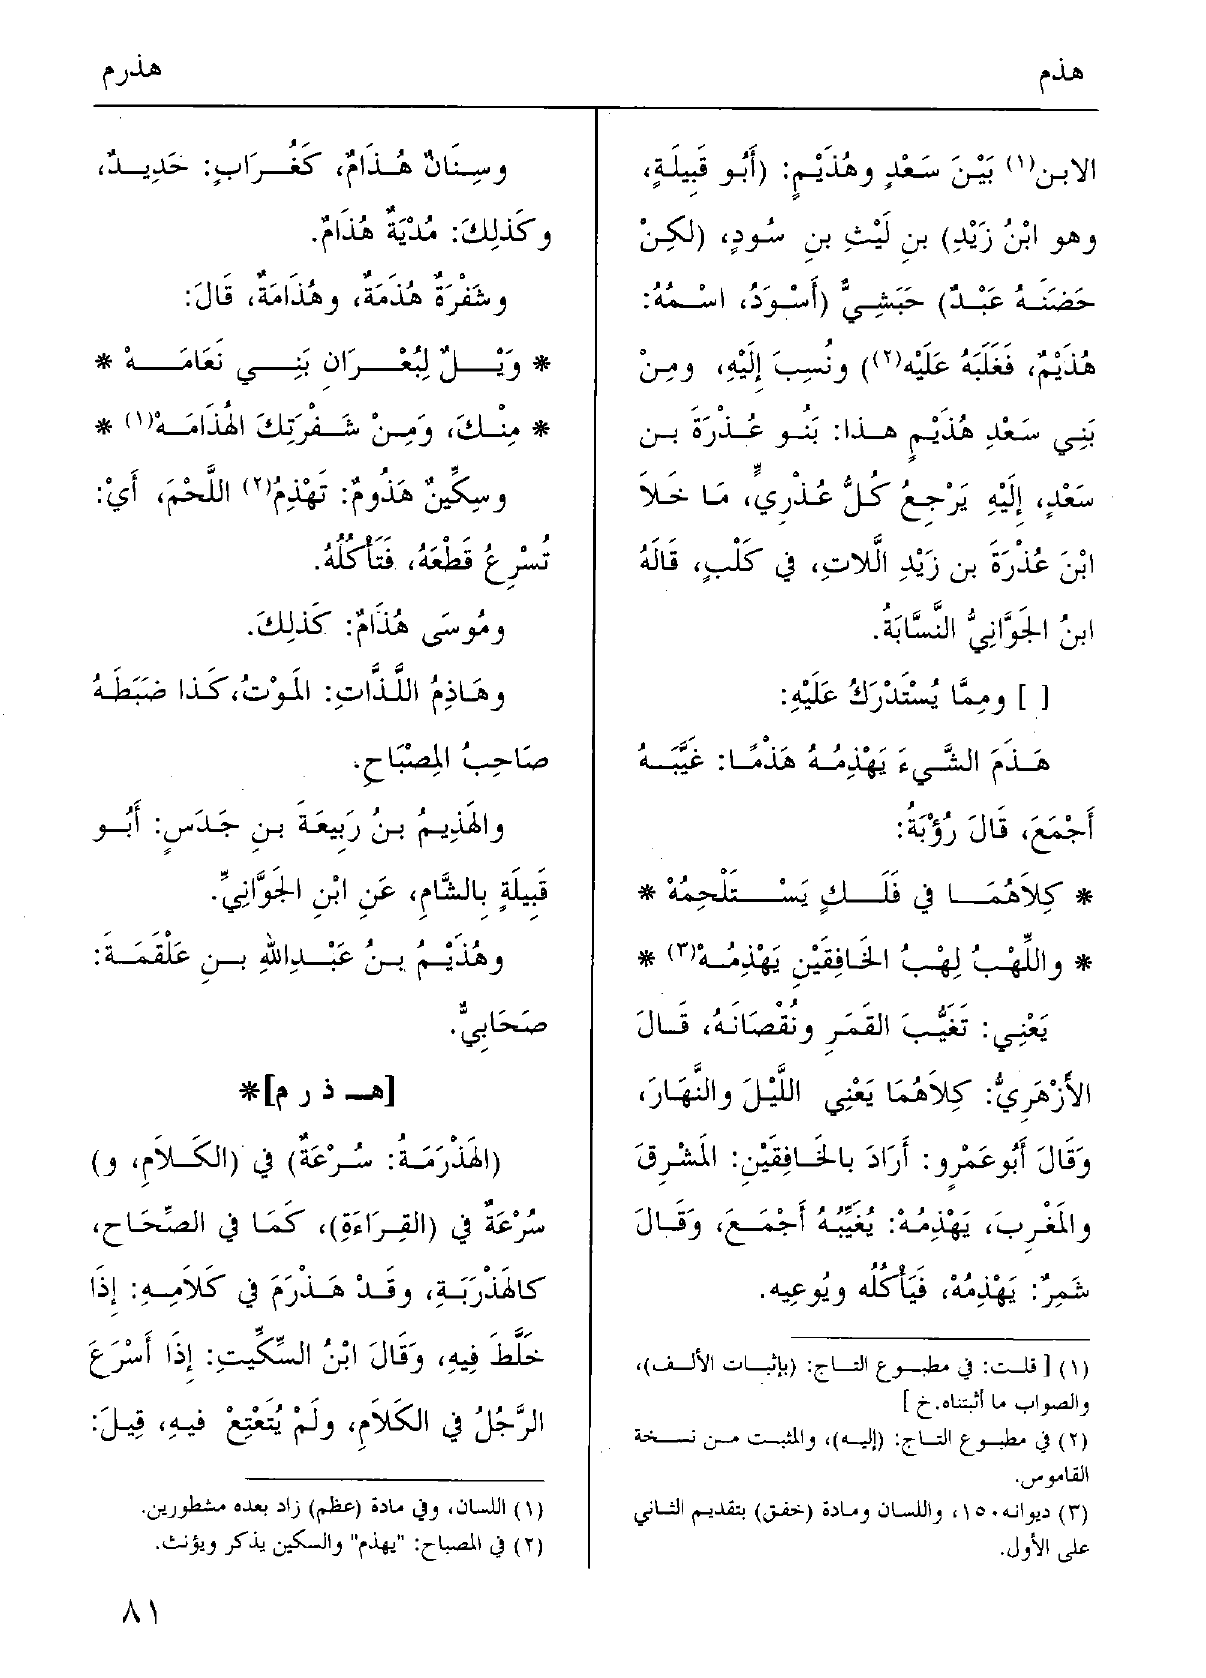 هذم
هذرم
الابن(١) بَيْنَ سَعْدٍ وهُذَيْمٍ: (أَبُو قَبِيلَةٍ،
وهو ابْنُ زَيْدِ) بنِ لَيْثِ بنِ سُودٍ، (لكِنْ
حَضَنَهُ عَبْدٌ) حَبَشِيٌّ (أَسْوَدُ، اسْمُهُ:
هُذَيْمٌ، فَغَلَبَهُ عَلَيْه(٢)) ونُسِبَ إِلَيْهِ، ومِنْ
بَنِي سَعْدِ هُذَيْمٍ هذا: بَنُو عُذْرَةَ بنِ
سَعْدٍ، إِلَيْهِ يَرْجِعُ كُلُّ عُذْرِيٍّ، مَا خَلاَ
ابْنَ عُذْرَةَ بنِ زَيْدِ الَّلاتِ، في كَلْبٍ، قَالَهُ
ابنُ الجَوَّانِيُّ النَّسَّابَةُ.
[ ] ومِمَّا يُسْتَدْرَكُ عَلَيْهِ:
هَذَمَ الشَّيءَ يَهْذِمُهُ هَذْمًا: غَيَّبَهُ
أَجْمَعَ، قَالَ رُؤْبَةُ:
* كِلاَهُمَا في فَلَكٍ يَسْتَلْحِمُهْ *
* واللِّهْبُ لِهْبُ الخَافِقَيْنِ يَهْذِمُهْ(٣) *
يَعْنِي: تَغَيُّبَ القَمَرِ ونُقْصَانَهُ، قَالَ
الأَزْهَرِيُّ: كِلاَهُمَا يَعْنِي اللَّيْلَ والنَّهَارَ،
وَقَالَ أَبُوعَمْرٍو: أَرَادَ بالخَافِقَيْنِ: المَشْرِقَ
والمَغْرِبَ، يَهْذِمُهُ: يُغَيِّبُهُ أَجْمَعَ، وَقَالَ
شَمِرٌ: يَهْذِمُهُ، فَيَأْكُلُه ويُوعِيه.
(١) [ قلت: في مطبوع التاج: (بإثبات الألف)،
والصواب ما أثبتناه.خ ]
(٢) في مطبوع التاج: (إليه)، والمثبت من نسخة
القاموس.
(٣) ديوانه١٥٠، واللسان ومادة (خفق) بتقديم الثاني
على الأول.
وسِنَانٌ هُذَامٌ، كَغُرَابٍ: حَدِيدٌ،
وكَذلِكَ: مُدْيَةٌ هُذَامٌ.
وشَفْرَةٌ هُذَمَةٌ، وهُذَامَةٌ، قَالَ:
* وَيْلٌ لِبُعْرَانِ بَنِي نَعَامَهْ *
* مِنْكَ، وَمِنْ شَفْرَتِكَ الهُذَامَهْ(١) *
وسِكِّينٌ هَذُومٌ: تَهْذِمُ(٢) اللَّحْمَ، أَيْ:
تُسْرِعُ قَطْعَهُ، فَتَأْكُلُهُ.
ومُوسَى هُذَامٌ: كَذلِكَ.
وهَاذِمُ اللَّذَّاتِ: المَوْتُ،كَذا ضَبَطَهُ
صَاحِبُ المِصْبَاحِ.
والهَذِيمُ بنُ رَبِيعَةَ بنِ حَدَسٍ: أَبُو
قَبِيلَةٍ بِالشَّامِ، عَنِ ابْنِ الجَوَّانِيِّ.
وهُذَيْمُ بنُ عَبْدِاللهِ بنِ عَلْقَمَةَ:
صَحَابِيٌّ.
[هـ ذ ر م]*
(الهَذْرَمَةُ: سُرْعَةٌ) في (الكَلاَمِ، و)
سُرْعَةٌ في (القِرَاءَةِ)، كَمَا في الصِّحَاحِ،
كالهَذْرَبَةِ، وقَدْ هَذْرَمَ في كَلاَمِهِ: إِذَا
خَلَّطَ فِيهِ، وَقَالَ ابْنُ السِّكِّيتِ: إِذَا أَسْرَعَ
الرَّجُلُ في الكَلاَمِ، ولَمْ يُتَعْتِعْ فيهِ، قِيلَ:
(١) اللسان، وفي مادة (عظم) زاد بعده مشطورين.
(٢) في المصباح: "يهذم" والسكين يذكر ويؤنث.
٨١